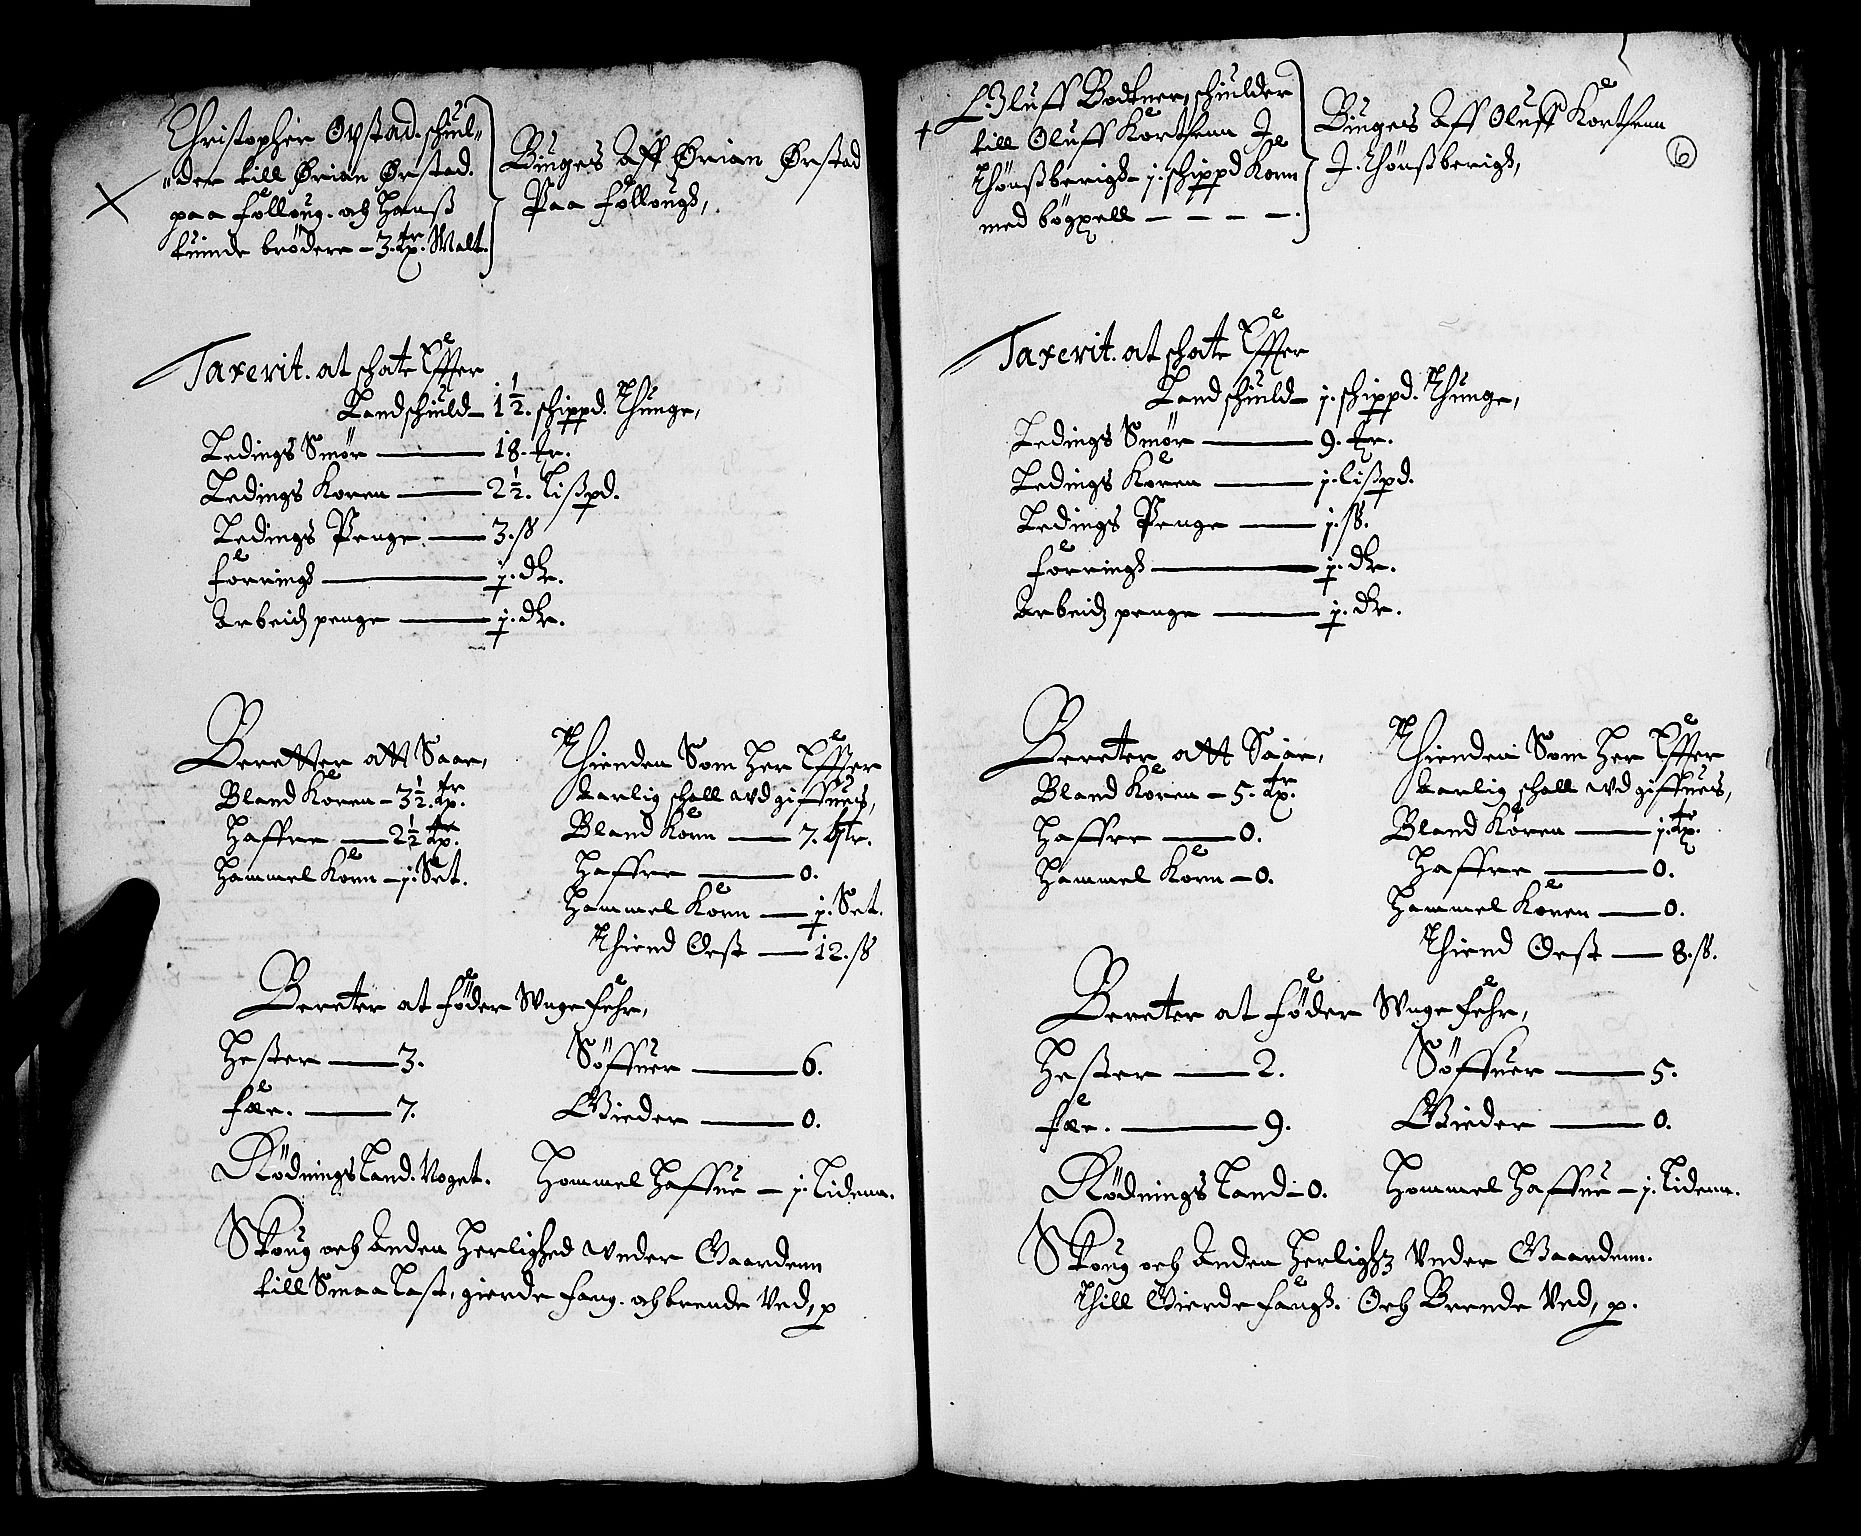 Christopher Opstad. schul„
„der till Ørian Ørstad.
paa Folloug. och Hanß
tuinde brödere – 3. tr. Malt.
Bruges Aff Ørian Ørstad
Paa Follougs,
Taxerit. at schate Effter
Landschuld – 1½. schippd. Thunge,
Ledings Smör — 18. mr.
Ledings Koren — 2½. Lißpd.
Ledings Penge — 3. ß
Forrings — j. dlr.
Arbeidz penge — j. dlr.
Beretter att Saae,
Bland Koren – 3½. tr.
Haffre — 2½ tr.
Hammel Korn – j. Set.
Thienden Som Her Effter
Aarlig schall Wdgiffues,
Bland Korn — 7. qtr.
Haffre — 0.
Hammel Korn — j. Set.
Thiend Oest — 12. ß
Bereter at föder Wngefehr,
Hester — 3.
Söffuer — 6.
Fæe. — 7.
Gieder — 0.
Rödnings Land. Noget.
Hommel Haffue – j. Lidenn.
Skoug och Anden Herlighed Wnder Gaardenn
till Smaa Last, gierde fang. och brende Ved, p
6
Oluff Bodkner, schulder
till Oluff Kortsenn J
Thönßberigs – j. schippd Korn
med bögxell – – – –.
Bruges Aff Oluff Kortsenn
J. Thönßberigs,
Taxerit. at schate Effter
Landschuld – j. schippd. Thunge,
Ledings Smör — 9. mr.
Ledings Koren — j. Lißpd.
Ledings Penge — j. ß.
Forrings — j. dlr.
Arbeidz penge — j. dlr.
Bereter att Saae,
Bland Koren – 5. tr.
Haffre — 0.
Hammel Korn – 0.
Thienden Som Her Effter
Aarlig schall Wdgiffues,
Bland Koren — j. tr.
Haffre — 0.
Hammel Koren — 0.
Thiend Oest — 8. ß.
Bereter at föder Wngefehr,
Hester — 2.
Söffuer — 5.
Fæe. — 9.
Gieder — 0.
Rödnings Land – 0.
Hommel Haffue – j. Lidenn.
Skoug och Anden Herlighz Vnder Gaardenn.
Thill Gierdefangs. Och Brende Ved, p.